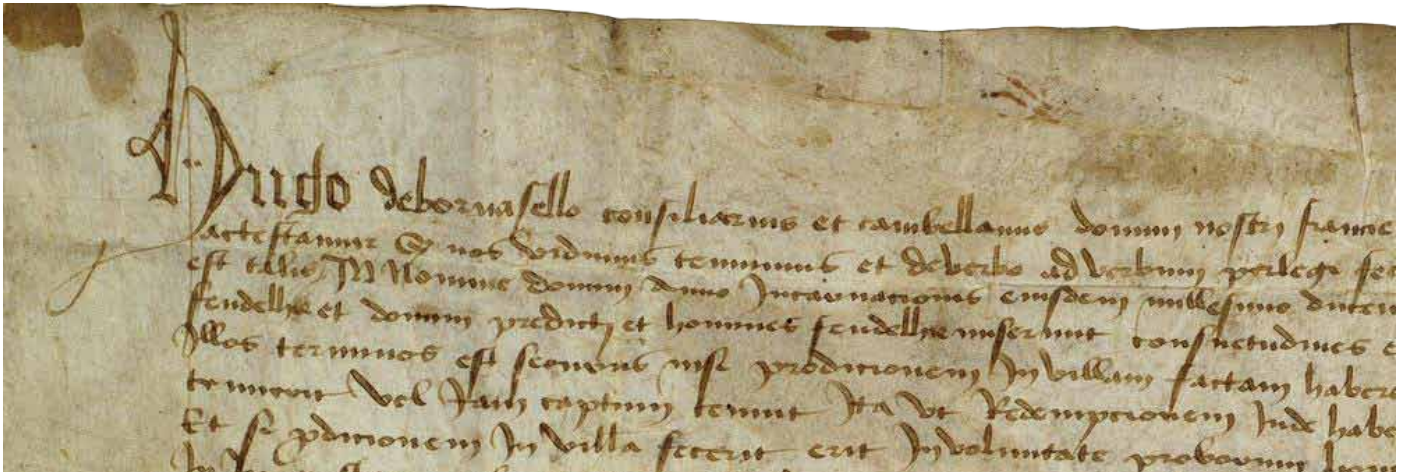 Hugo de bornasello consiliarius et cambellanus domini nostri francie
actestamur nos vidimus tenuimus et de verbo ad verbum perlegi fec
est talis In Nomine domini Anno Incarnacionis eiusdem millesimo ducen
fendellye et domini predicti et homines fendellye miserunt consuetudines e
Illos terminos est securus nisi prodicionem In villam factam habere
vel Jam captum tenuit Ita Vt Redempcionem Inde habe
Et si pdicionem In villa fecerit erit In voluntate proborum